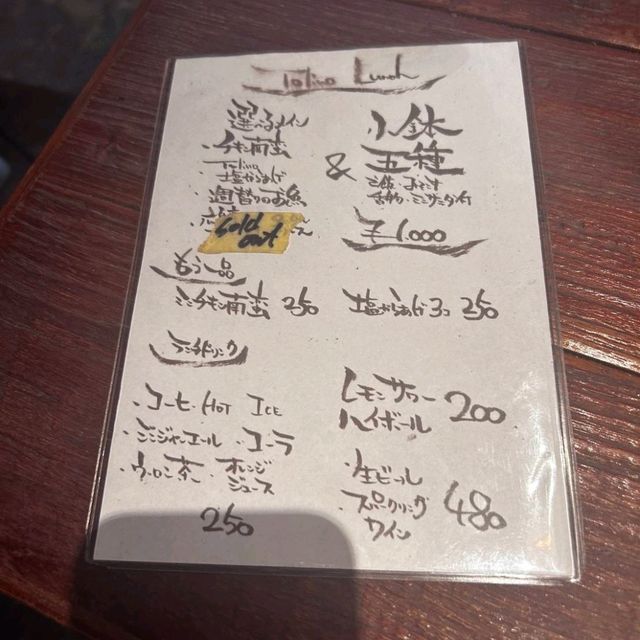 Lunch
選べるメイン
・チキン南蛮
・塩から揚げ
・週替わりお魚
Sold
out
&
小鉢
五種
ご飯・おみそ汁
¥1,000
もう一品
ミニチキン南蛮 250
塩から揚げ3コ 250
ランチドリンク
・コーヒー HOT ICE
・ジンジャーエール ・コーラ
・ウーロン茶 ・オレンジ
ジュース
250
・レモンサワー
・ハイボール 200
・生ビール
・スパークリング
ワイン 480